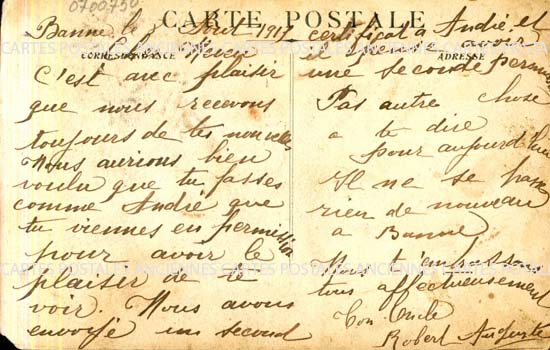 0700750
CARTE POSTALE
CORRESPONDANCE
ADRESSE
Banne le 9 Aout 1917
C'est avec plaisir
que nous recevons
toujours de tes nouvelles
Nous aurions bien
voulu que tu fasses
comme André que
tu viennes en permission
pour avoir le
plaisir de te
voir. Nous avons
envoyé un second
certificat a André et
il avoir
une seconde permis
Pas autre chose
a te dire
pour aujourd'hui
Il ne se passe
rien de nouveau
a Banne
Nous t'embrassons
tous affectueusement
Ton Oncle
Robert Auguste
CARTES POSTALES ANCIENNES CARTES POSTALES ANCIENNES